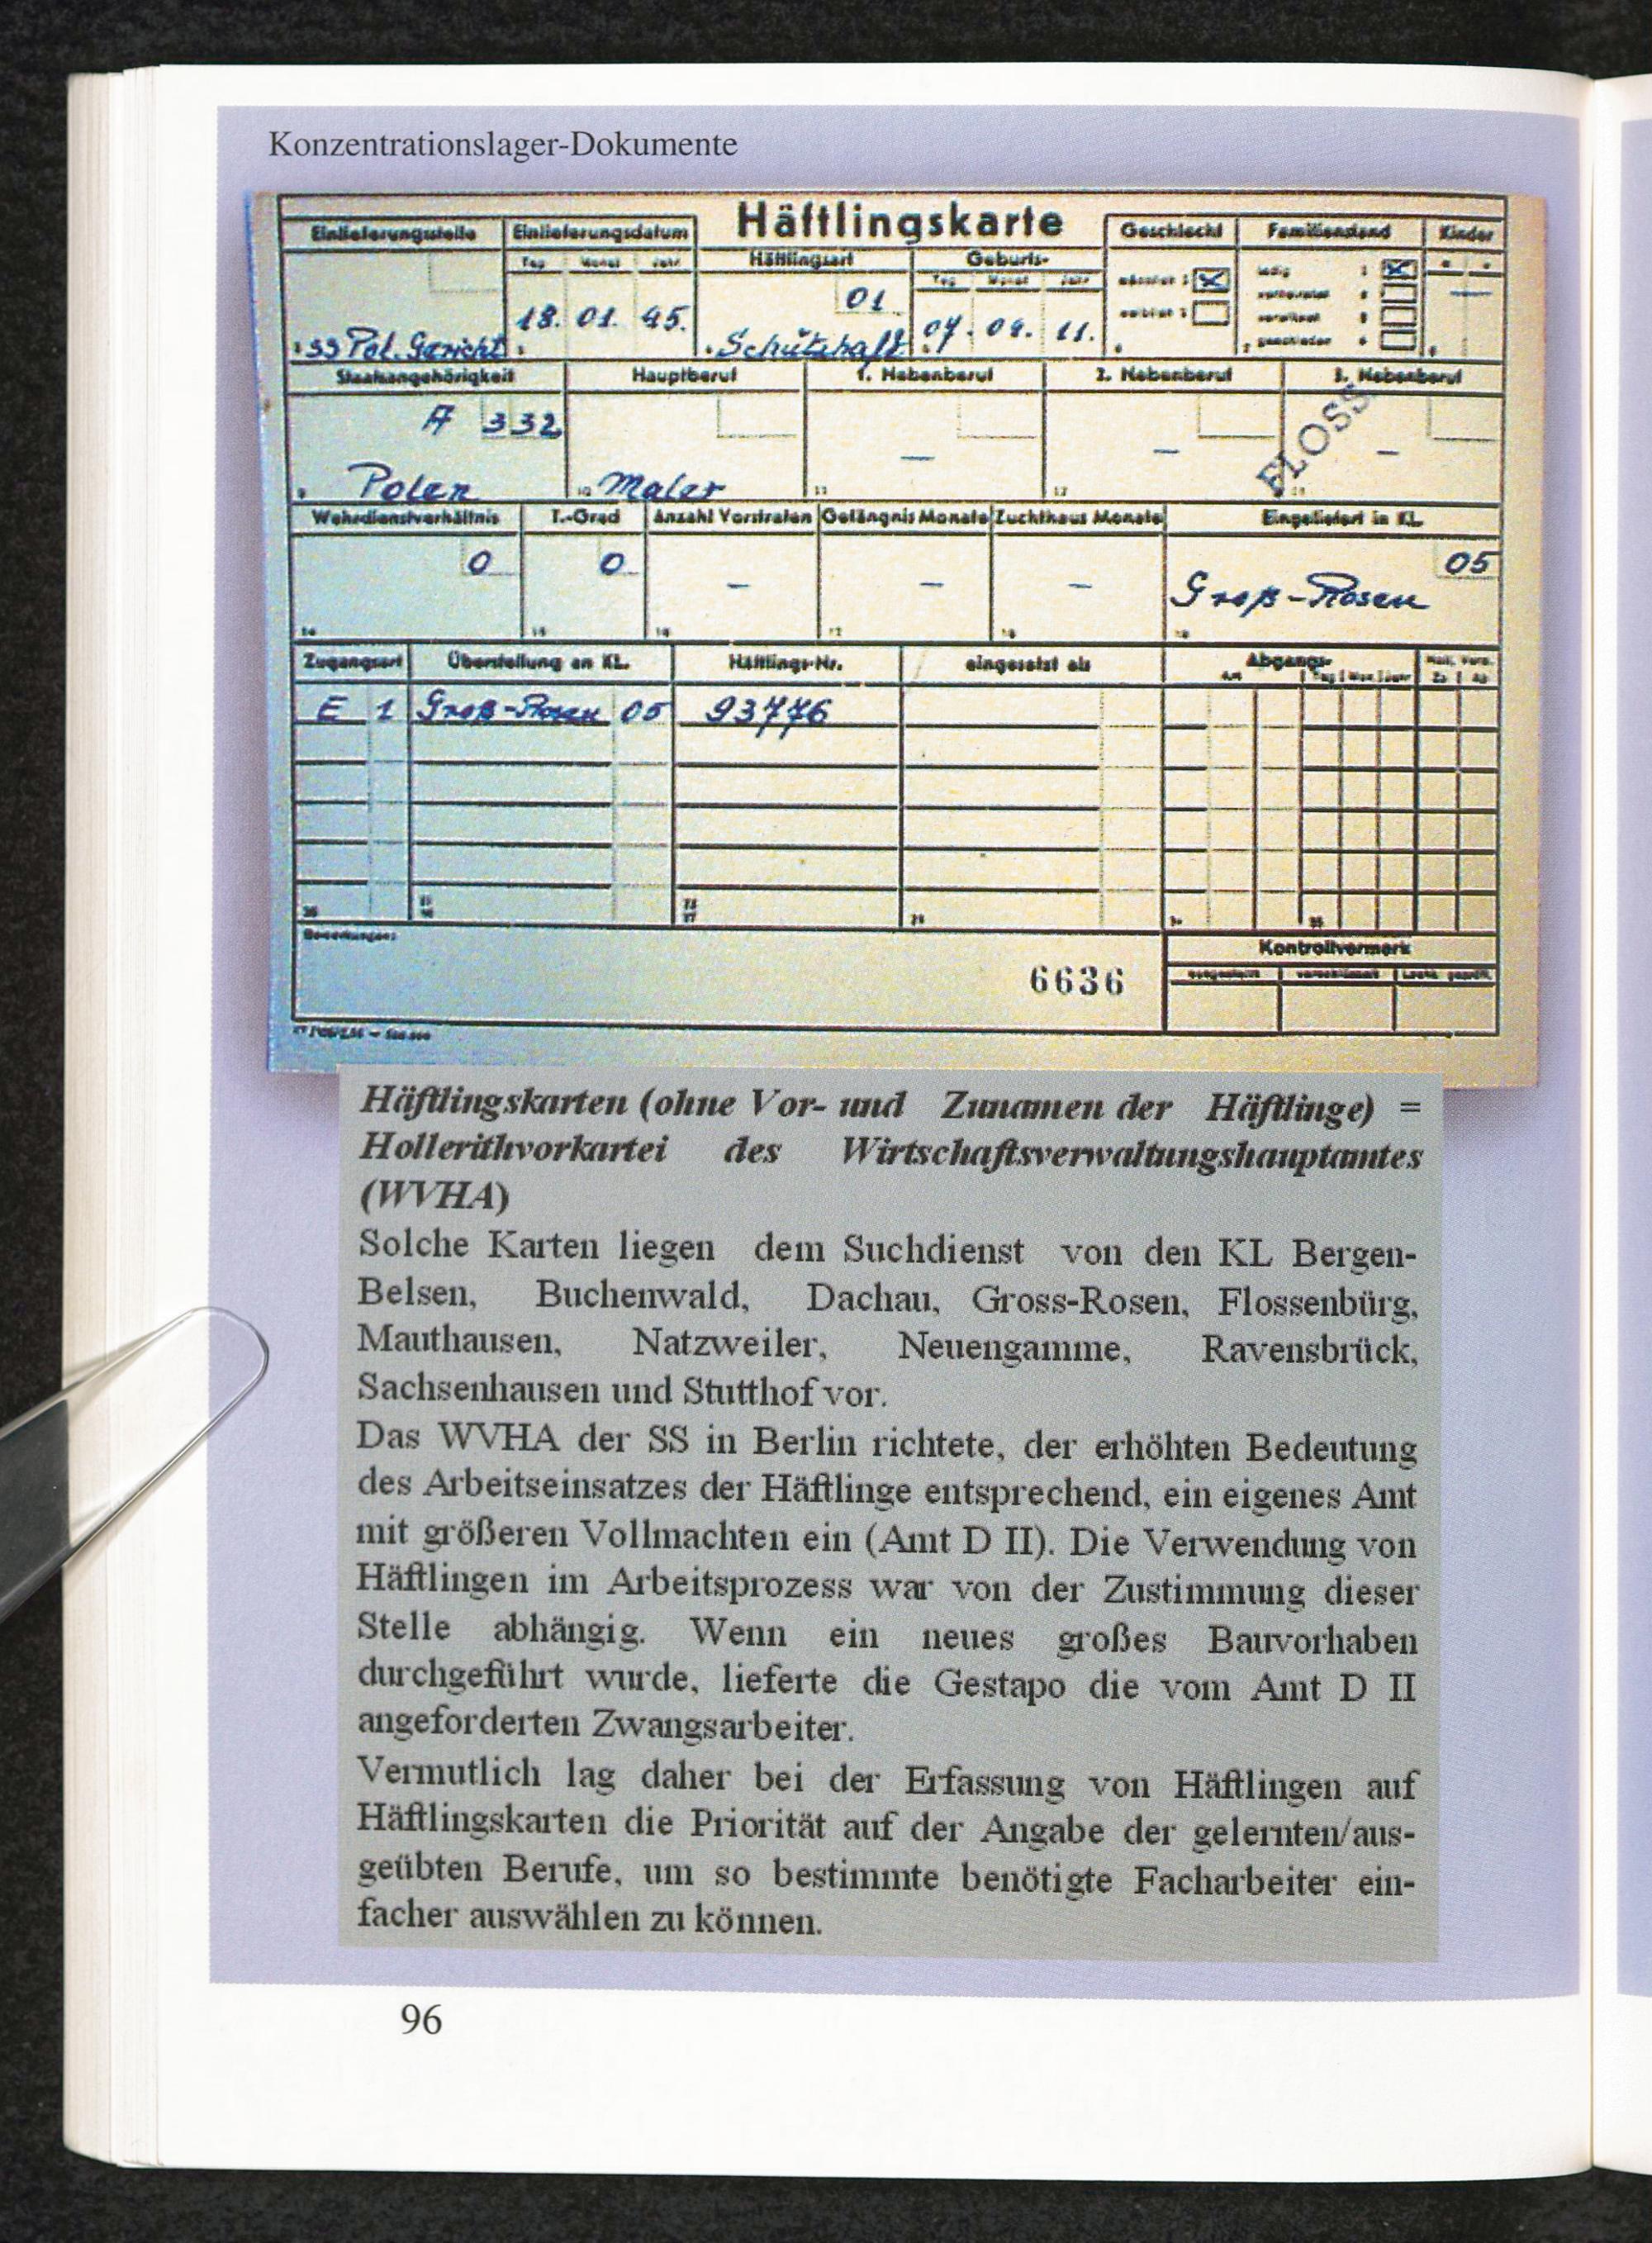 Konzentrationslager-Dokumente
Häftlingskarte
Einlieferungsstelle Einlieferungsdatum Geschlecht Familienstand Kinder
Tag Monat Jahr Häftlingsart Geburts-
Tag Monat Jahr
männlich 1 ledig 1
01
weiblich 2 verheiratet
verwitwet
geschieden
SS Pol. Gericht 18. 01. 45. Schutzhaft 07. 09. 11.
Staatsangehörigkeit Hauptberuf 1. Nebenberuf 2. Nebenberuf 3. Nebenberuf
A 332 – – –
FLOSS.
Polen 10 Maler 11 12
Wehrdienstverhältnis T.-Grad Anzahl Vorstrafen Gefängnis Monate Zuchthaus Monate Eingeliefert in KL
0 0 – – – 05
Groß-Rosen
Zugangsart Überstellung an KL. Häftlings-Nr. eingesetzt als Abgangs-
Tag Mon. Jahr
E 1 Groß-Rosen 05 93776
Bemerkungen:
Kontrollvermerk
6636
Häftlingskarten (ohne Vor- und Zunamen der Häftlinge) =
Hollerithvorkartei des Wirtschaftsverwaltungshauptamtes
(WVHA)
Solche Karten liegen dem Suchdienst von den KL Bergen-
Belsen, Buchenwald, Dachau, Gross-Rosen, Flossenbürg,
Mauthausen, Natzweiler, Neuengamme, Ravensbrück,
Sachsenhausen und Stutthof vor.
Das WVHA der SS in Berlin richtete, der erhöhten Bedeutung
des Arbeitseinsatzes der Häftlinge entsprechend, ein eigenes Amt
mit größeren Vollmachten ein (Amt D II). Die Verwendung von
Häftlingen im Arbeitsprozess war von der Zustimmung dieser
Stelle abhängig. Wenn ein neues großes Bauvorhaben
durchgeführt wurde, lieferte die Gestapo die vom Amt D II
angeforderten Zwangsarbeiter.
Vermutlich lag daher bei der Erfassung von Häftlingen auf
Häftlingskarten die Priorität auf der Angabe der gelernten/aus-
geübten Berufe, um so bestimmte benötigte Facharbeiter ein-
facher auswählen zu können.
96